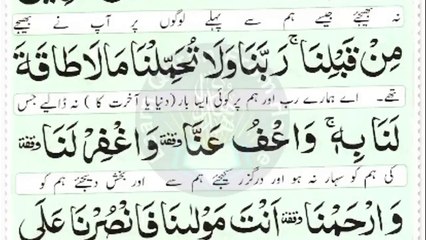 نہ بھیجئے جیسے ہم سے پہلے لوگوں پر آپ نے بھیجے
مِنْ قَبْلِنَا ۚ رَبَّنَا وَلَا تُحَمِّلْنَا مَا لَا طَاقَةَ
تھے۔ اے ہمارے رب اور ہم پر کوئی ایسا بار (دنیا یا آخرت کا) نہ ڈالیے جس
لَنَا بِهٖ ۚ وَاعْفُ عَنَّا وقفة وَاغْفِرْ لَنَا وقفة
کی ہم کو سہار نہ ہو اور درگزر کیجئے ہم سے اور بخش دیجئے ہم کو
وَارْحَمْنَا وقفة اَنْتَ مَوْلٰىنَا فَانْصُرْنَا عَلَى